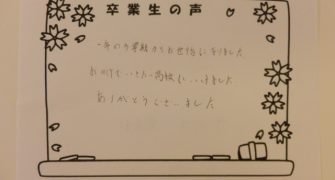 卒業生の声
一年の冬期からお世話になりました
おかげで いきたい高校に いけました
ありがとうございました